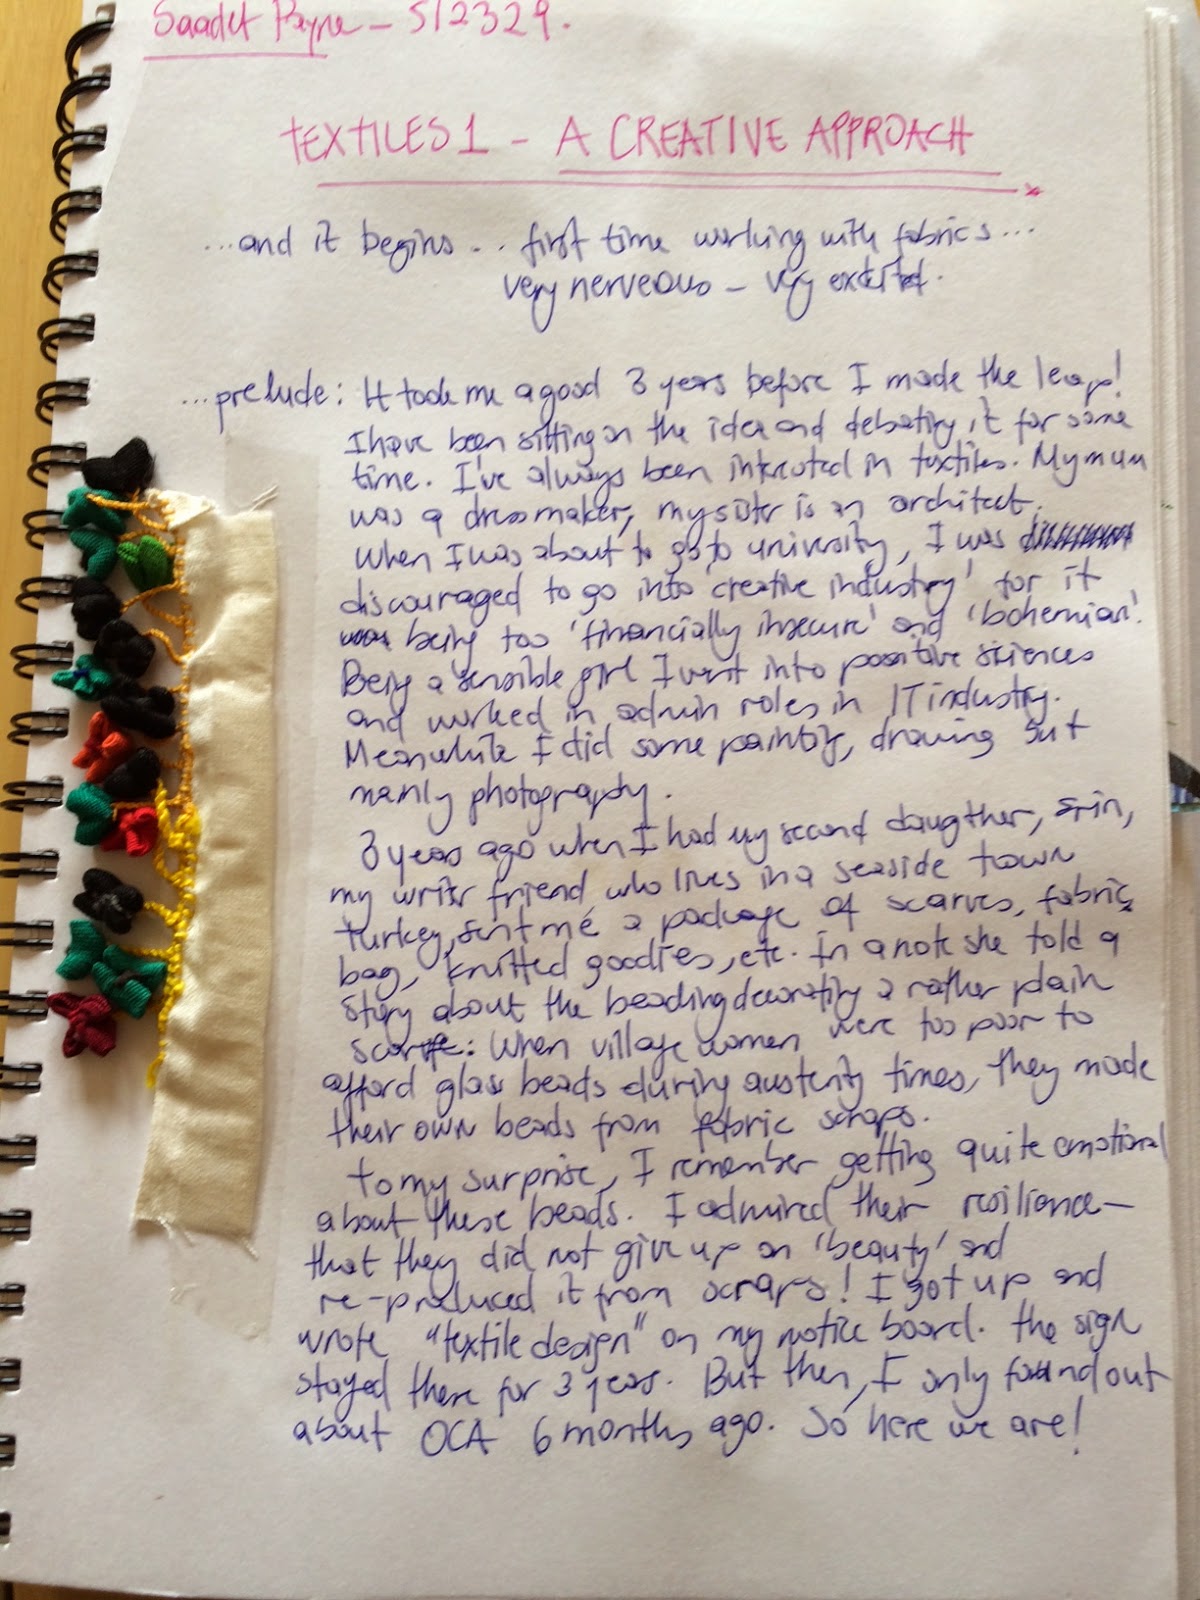 Saadet Payne - 512329.
TEXTILES 1 - A CREATIVE APPROACH
...and it begins... first time working with fabrics...
very nerveous - very excited.
...prelude: It took me a good 3 years before I made the leap!
I have been sitting on the idea and debating it for some
time. I've always been interested in textiles. My mum
was a dressmaker, my sister is an architect.
When I was about to go to university, I was
discouraged to go into 'creative industry' for it
being too 'financially insecure' and 'bohemian'.
Being a sensible girl I went into positive sciences
and worked in admin roles in IT industry.
Meanwhile I did some painting, drawing but
mainly photography.
3 years ago when I had my second daugther, Erin,
my writer friend, who lives in a seaside town
turkey, sent me a package of scarves, fabric
bag, knitted goodies, etc. In a note she told a
story about the beading decorating a rather plain
scarf: When village women were too poor to
afford glass beads during austerity times, they made
their own beads from fabric scraps.
To my surprise, I remember getting quite emotional
about these beads. I admired their resilience -
that they did not give up on 'beauty' and
re-produced it from scraps! I got up and
wrote "textile design" on my notice board. The sign
stayed there for 3 years. But then, I only found out
about OCA 6 months ago. So here we are!